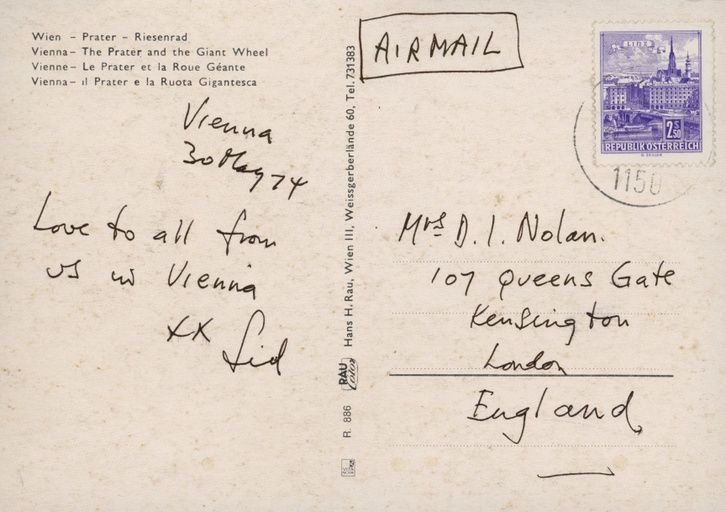 Wien - Prater - Riesenrad
Vienna - The Prater and the Giant Wheel
Vienne - Le Prater et la Roue Géante
Vienna - il Prater e la Ruota Gigantesca
Vienna
30 May 74
Love to all from
us in Vienna
XX Sid
Hans H. Rau, Wien III, Weissgerberlände 60, Tel. 731383
RAU
R. 886
AIRMAIL
LINZ
2 S 50
REPUBLIK ÖSTERREICH
1150
Mrs D. I. Nolan.
107 Queens Gate
Kensington
London
England